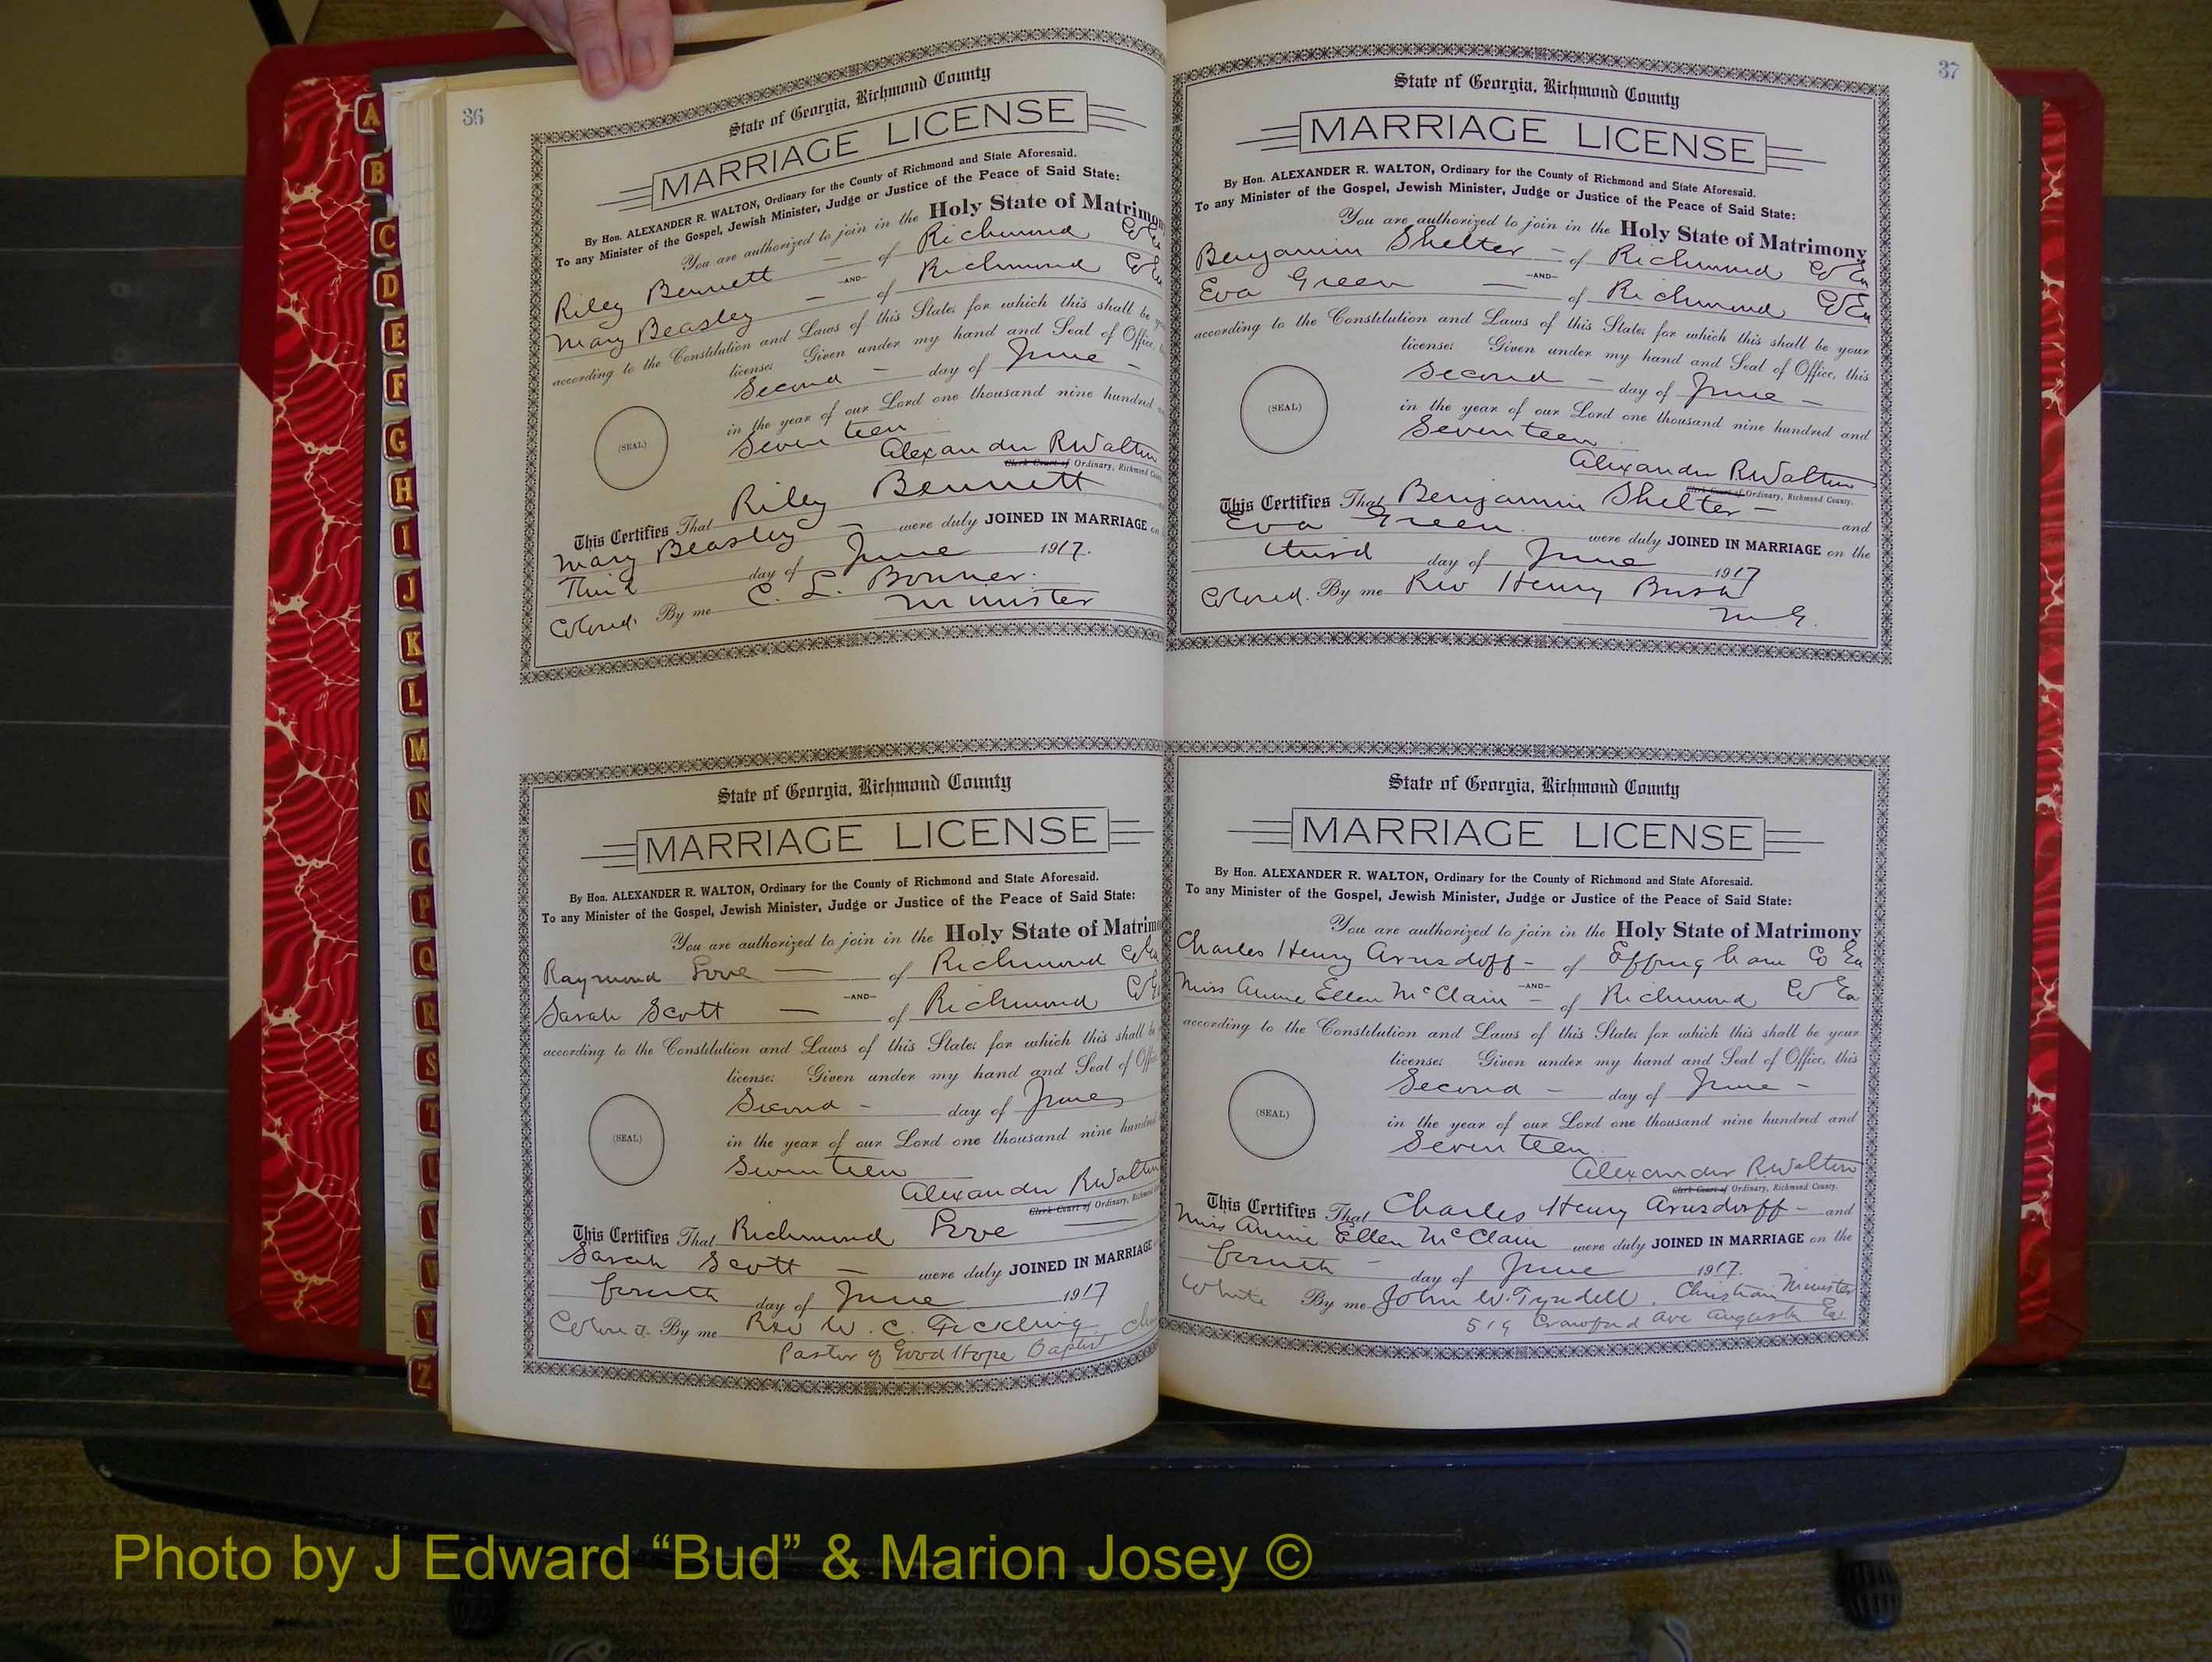 A
B
C
D
E
F
G
H
I
J
K
L
M
N
O
P
Q
R
S
T
U
V
W
Y
Z
36
State of Georgia, Richmond County
MARRIAGE LICENSE
By Hon. ALEXANDER R. WALTON, Ordinary for the County of Richmond and State Aforesaid.
To any Minister of the Gospel, Jewish Minister, Judge or Justice of the Peace of Said State:
You are authorized to join in the Holy State of Matrimony
Riley Bennett — of Richmond Co
—AND—
Mary Beasley — of Richmond Co
according to the Constitution and Laws of this State; for which this shall be
license: Given under my hand and Seal of Office,
Second – day of June –
(SEAL)
in the year of our Lord one thousand nine hundred
Seventeen
Alexander R Walton
Clerk Court of Ordinary, Richmond
This Certifies That Riley Bennett
Mary Beasley — were duly JOINED IN MARRIAGE on
Third day of June 1917.
Colored. By me C. L. Bonner.
Minister
State of Georgia, Richmond County
MARRIAGE LICENSE
By Hon. ALEXANDER R. WALTON, Ordinary for the County of Richmond and State Aforesaid.
To any Minister of the Gospel, Jewish Minister, Judge or Justice of the Peace of Said State:
You are authorized to join in the Holy State of Matrimo
Raymond Love — of Richmond Co Ga
—AND—
Sarah Scott — of Richmond Co
according to the Constitution and Laws of this State; for which this shall be
license: Given under my hand and Seal of Office
Second – day of June
(SEAL)
in the year of our Lord one thousand nine hundred
Seventeen
Alexander R Walton
Clerk Court of Ordinary, Richmond
This Certifies That Richmond Love
Sarah Scott — were duly JOINED IN MARRIAGE
fourth day of June 1917
Colored. By me Rev W. C. Fickling
Pastor of Good Hope Baptist
37
State of Georgia, Richmond County
MARRIAGE LICENSE
By Hon. ALEXANDER R. WALTON, Ordinary for the County of Richmond and State Aforesaid.
To any Minister of the Gospel, Jewish Minister, Judge or Justice of the Peace of Said State:
You are authorized to join in the Holy State of Matrimony
Benjamin Shelter – of Richmond Co Ga
—AND—
Eva Green — of Richmond Co Ga
according to the Constitution and Laws of this State; for which this shall be your
license: Given under my hand and Seal of Office, this
Second – day of June –
(SEAL)
in the year of our Lord one thousand nine hundred and
Seventeen
Alexander R Walton
Clerk Court of Ordinary, Richmond County.
This Certifies That Benjamin Shelter – and
Eva Green were duly JOINED IN MARRIAGE on the
third day of June 1917
Colored. By me Rev Henry Bush
M.G.
State of Georgia, Richmond County
MARRIAGE LICENSE
By Hon. ALEXANDER R. WALTON, Ordinary for the County of Richmond and State Aforesaid.
To any Minister of the Gospel, Jewish Minister, Judge or Justice of the Peace of Said State:
You are authorized to join in the Holy State of Matrimony
Charles Henry Arnsdorff – of Effingham Co Ga
—AND—
Miss Annie Ellen McClain – of Richmond Co Ga
according to the Constitution and Laws of this State; for which this shall be your
license: Given under my hand and Seal of Office, this
Second – day of June –
(SEAL)
in the year of our Lord one thousand nine hundred and
Seventeen
Alexander R Walton
Clerk Court of Ordinary, Richmond County.
This Certifies That Charles Henry Arnsdorff – and
Miss Annie Ellen McClain were duly JOINED IN MARRIAGE on the
fourth – day of June 1917.
White By me John W. Tyndell, Christian Minister
519 Crawford Ave Augusta Ga
Photo by J Edward “Bud” & Marion Josey ©